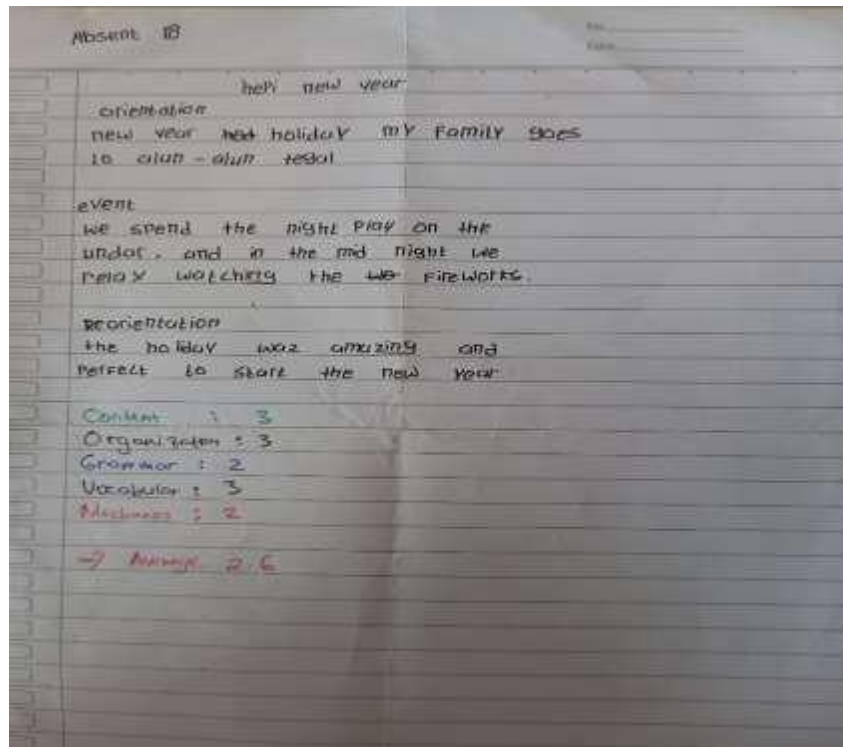 Absent 18
hepi new year
orientation
new year holiday my Family goes
to alun - alun tegal
event
we spend the night Play on the
undor, and in the mid night we
relax watching the Fireworks.
Reorientation
the holiday waz amazing and
Perfect to start the new Year
Content : 3
Organizaton : 3
Grammar : 2
Vocabular : 3
Mechanics : 2
→ Average 2.6